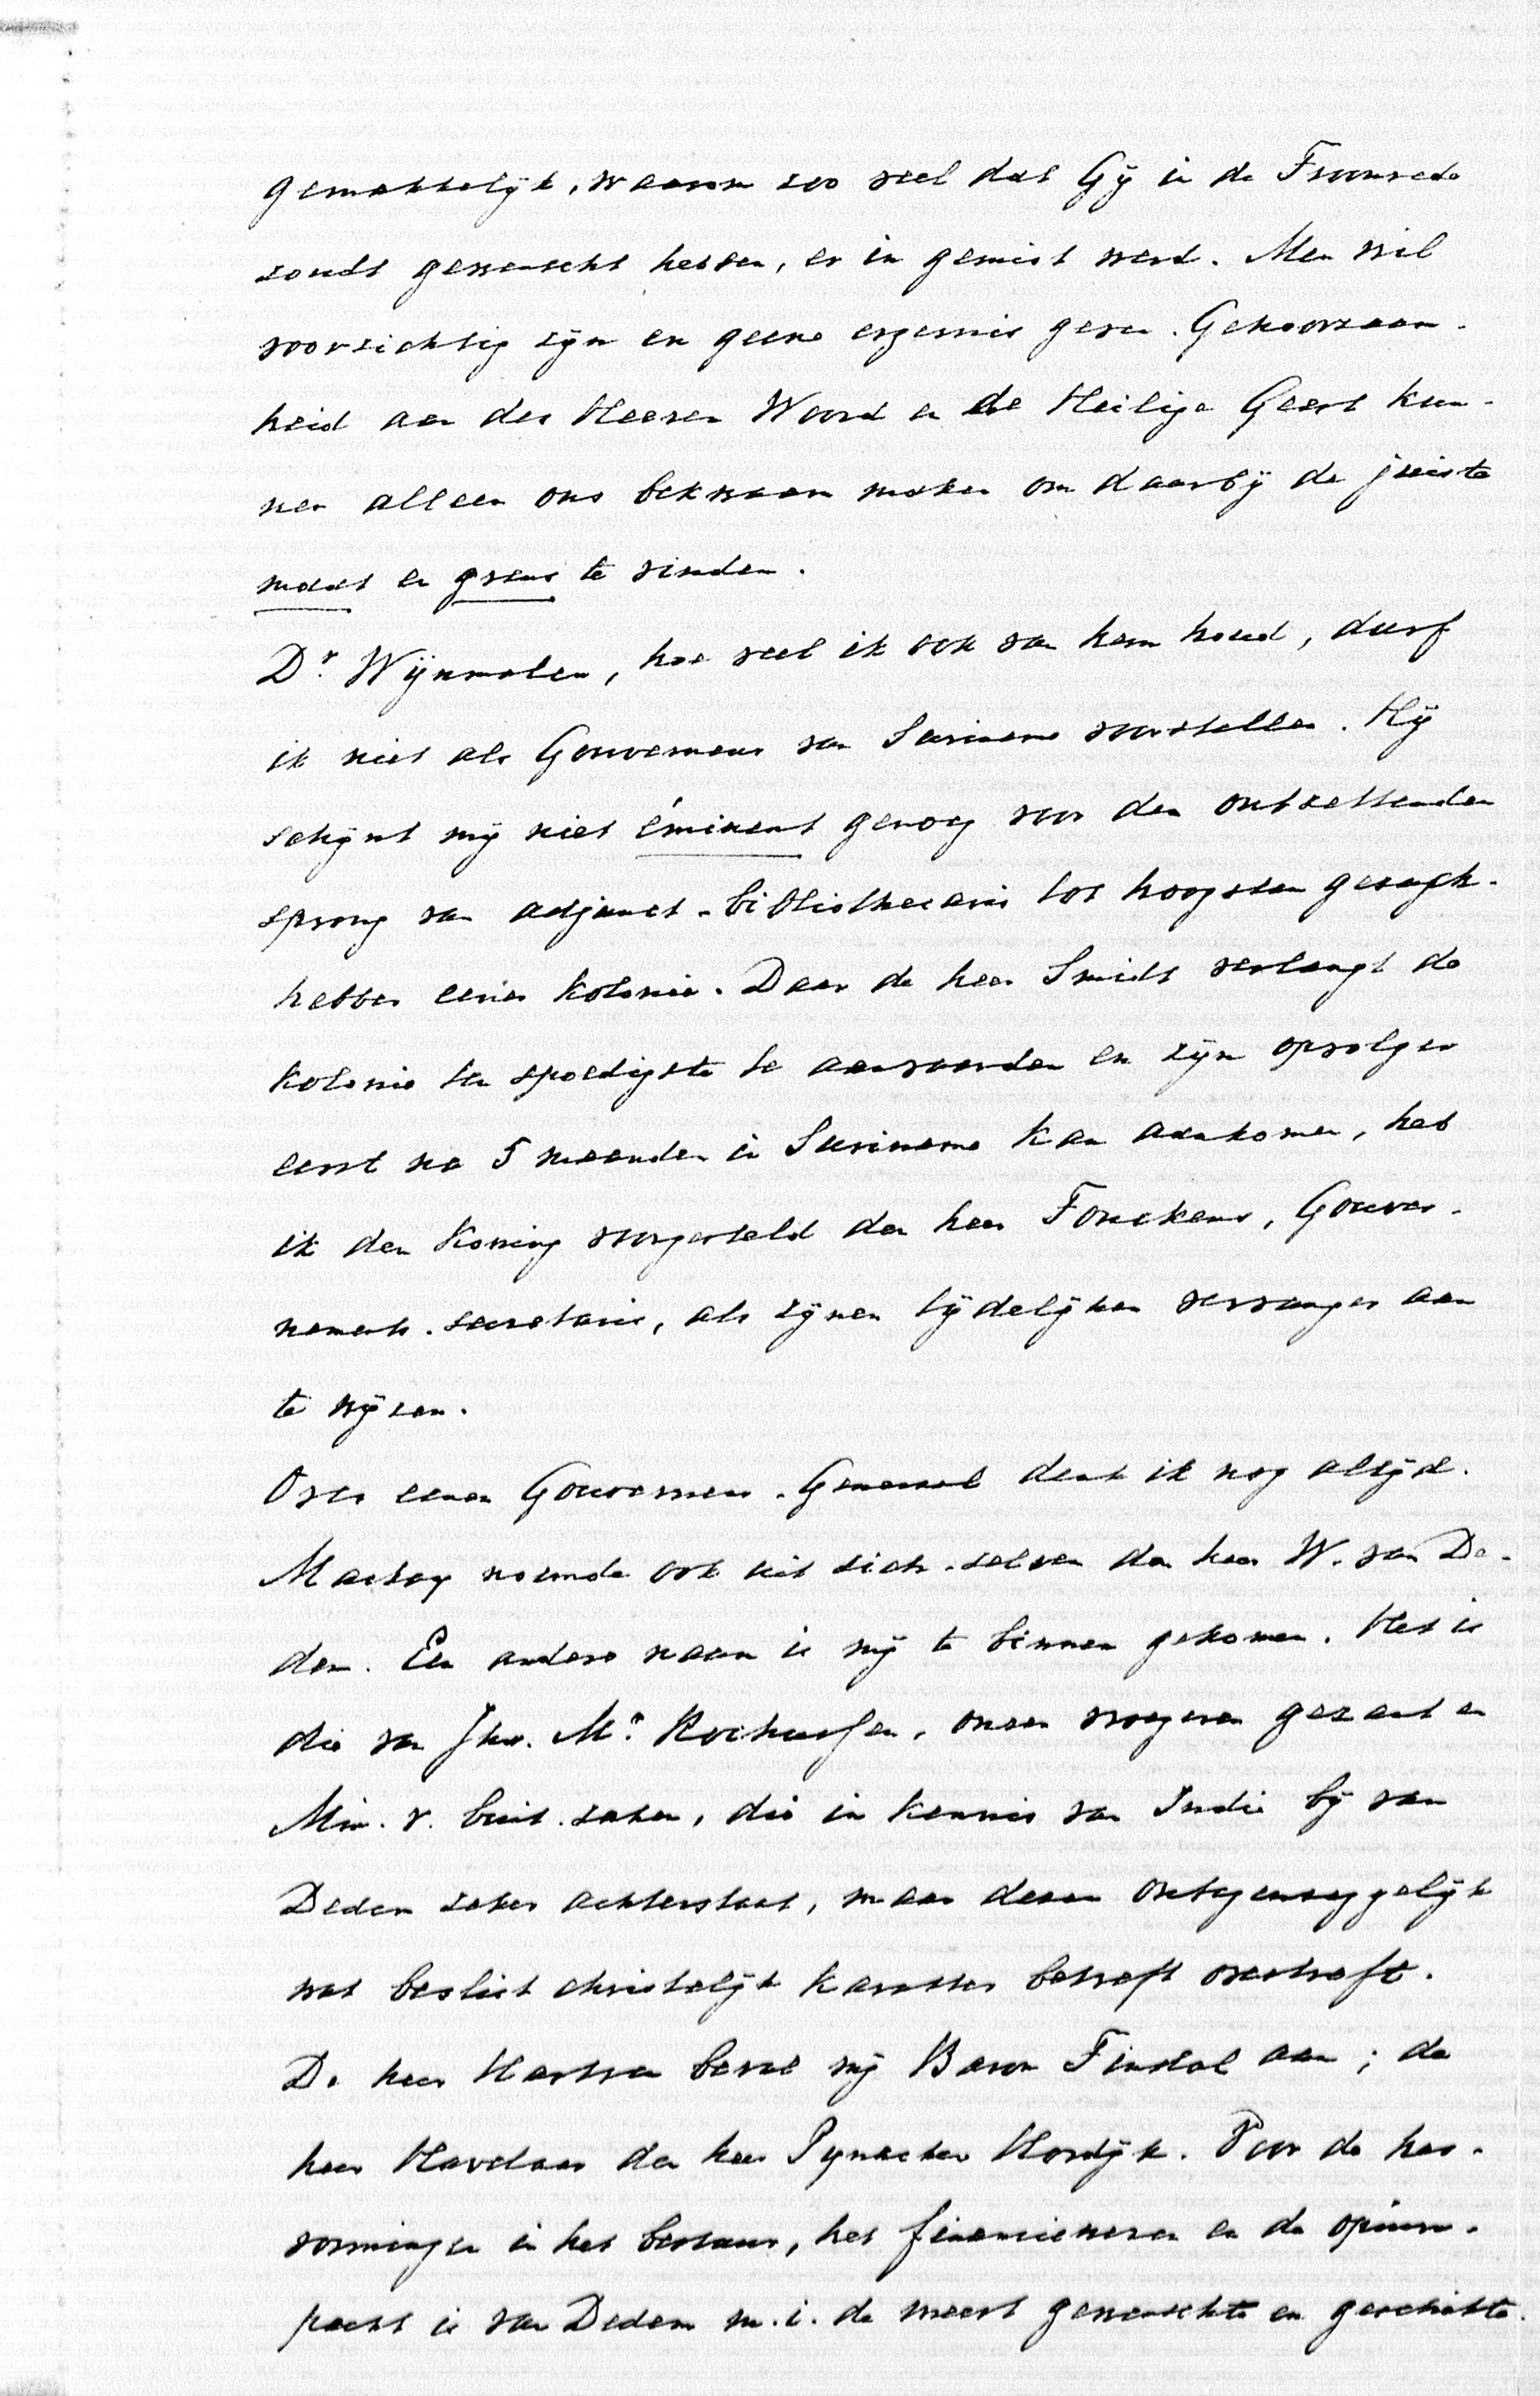 gemakkelijk, waarom zoo veel dat Gij in de Troonrede
zoudt gewenscht hebben, er in gemist werd. Men wil
voorzichtig zijn en geene ergernis geven. Gehoorzaam-
heid aan des Heeren Woord en de Heilige Geest kun-
nen alleen ons bekwaam maken om daarbij de juiste
maat en grens te vinden.
Dr. Wijnmalen, hoe veel ik ook van hem houd, durf
ik niet als Gouverneur van Suriname voorstellen. Hij
schijnt mij niet éminent genoeg voor den ontzettenden
sprong van adjunct-bibliothecaris tot hoogsten gezagh-
hebber eener kolonie. Daar de heer Smidt verlangt de
kolonie ten spoedigste te aanvaarden en zijn opvolger
eerst na 5 maanden in Suriname kan aankomen, heb
ik den Koning voorgesteld den heer Tonckens, Gouver-
nements-secretaris, als zijnen tijdelijken vervanger aan
te wijzen.
Over eenen Gouverneur-Generaal denk ik nog altijd.
Mackay noemde ook uit zich-zelven den heer W. van De-
dem. Een andere naam is mij te binnen gekomen. Het is
die van Jhr. Mr. Rochussen, onzen vroegeren gezant en
Min. v. buit. zaken, die in kennis van Indië bij van
Dedem zeker achterstaat, maar dezen ontegenzeggelijk
wat beslist christelijk karakter betreft overtreft.
De heer Hartsen beval mij Baron Tindal aan; de
heer Havelaar den heer Pynacker Hordijk. Voor de her-
vormingen in het bestuur, het financiewezen en de opium-
pacht is van Dedem m.i. de meest gewenschte en geschikte.